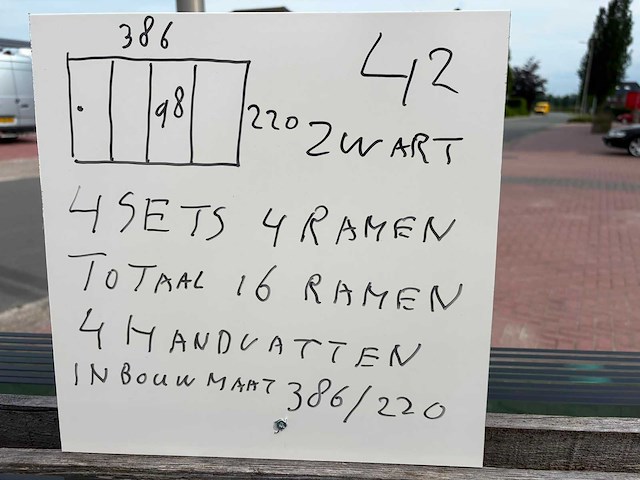 386
42
98
220
ZWART
4 SETS 4 RAMEN
TOTAAL 16 RAMEN
4 HANDVATTEN
INBOUWMAAT 386/220